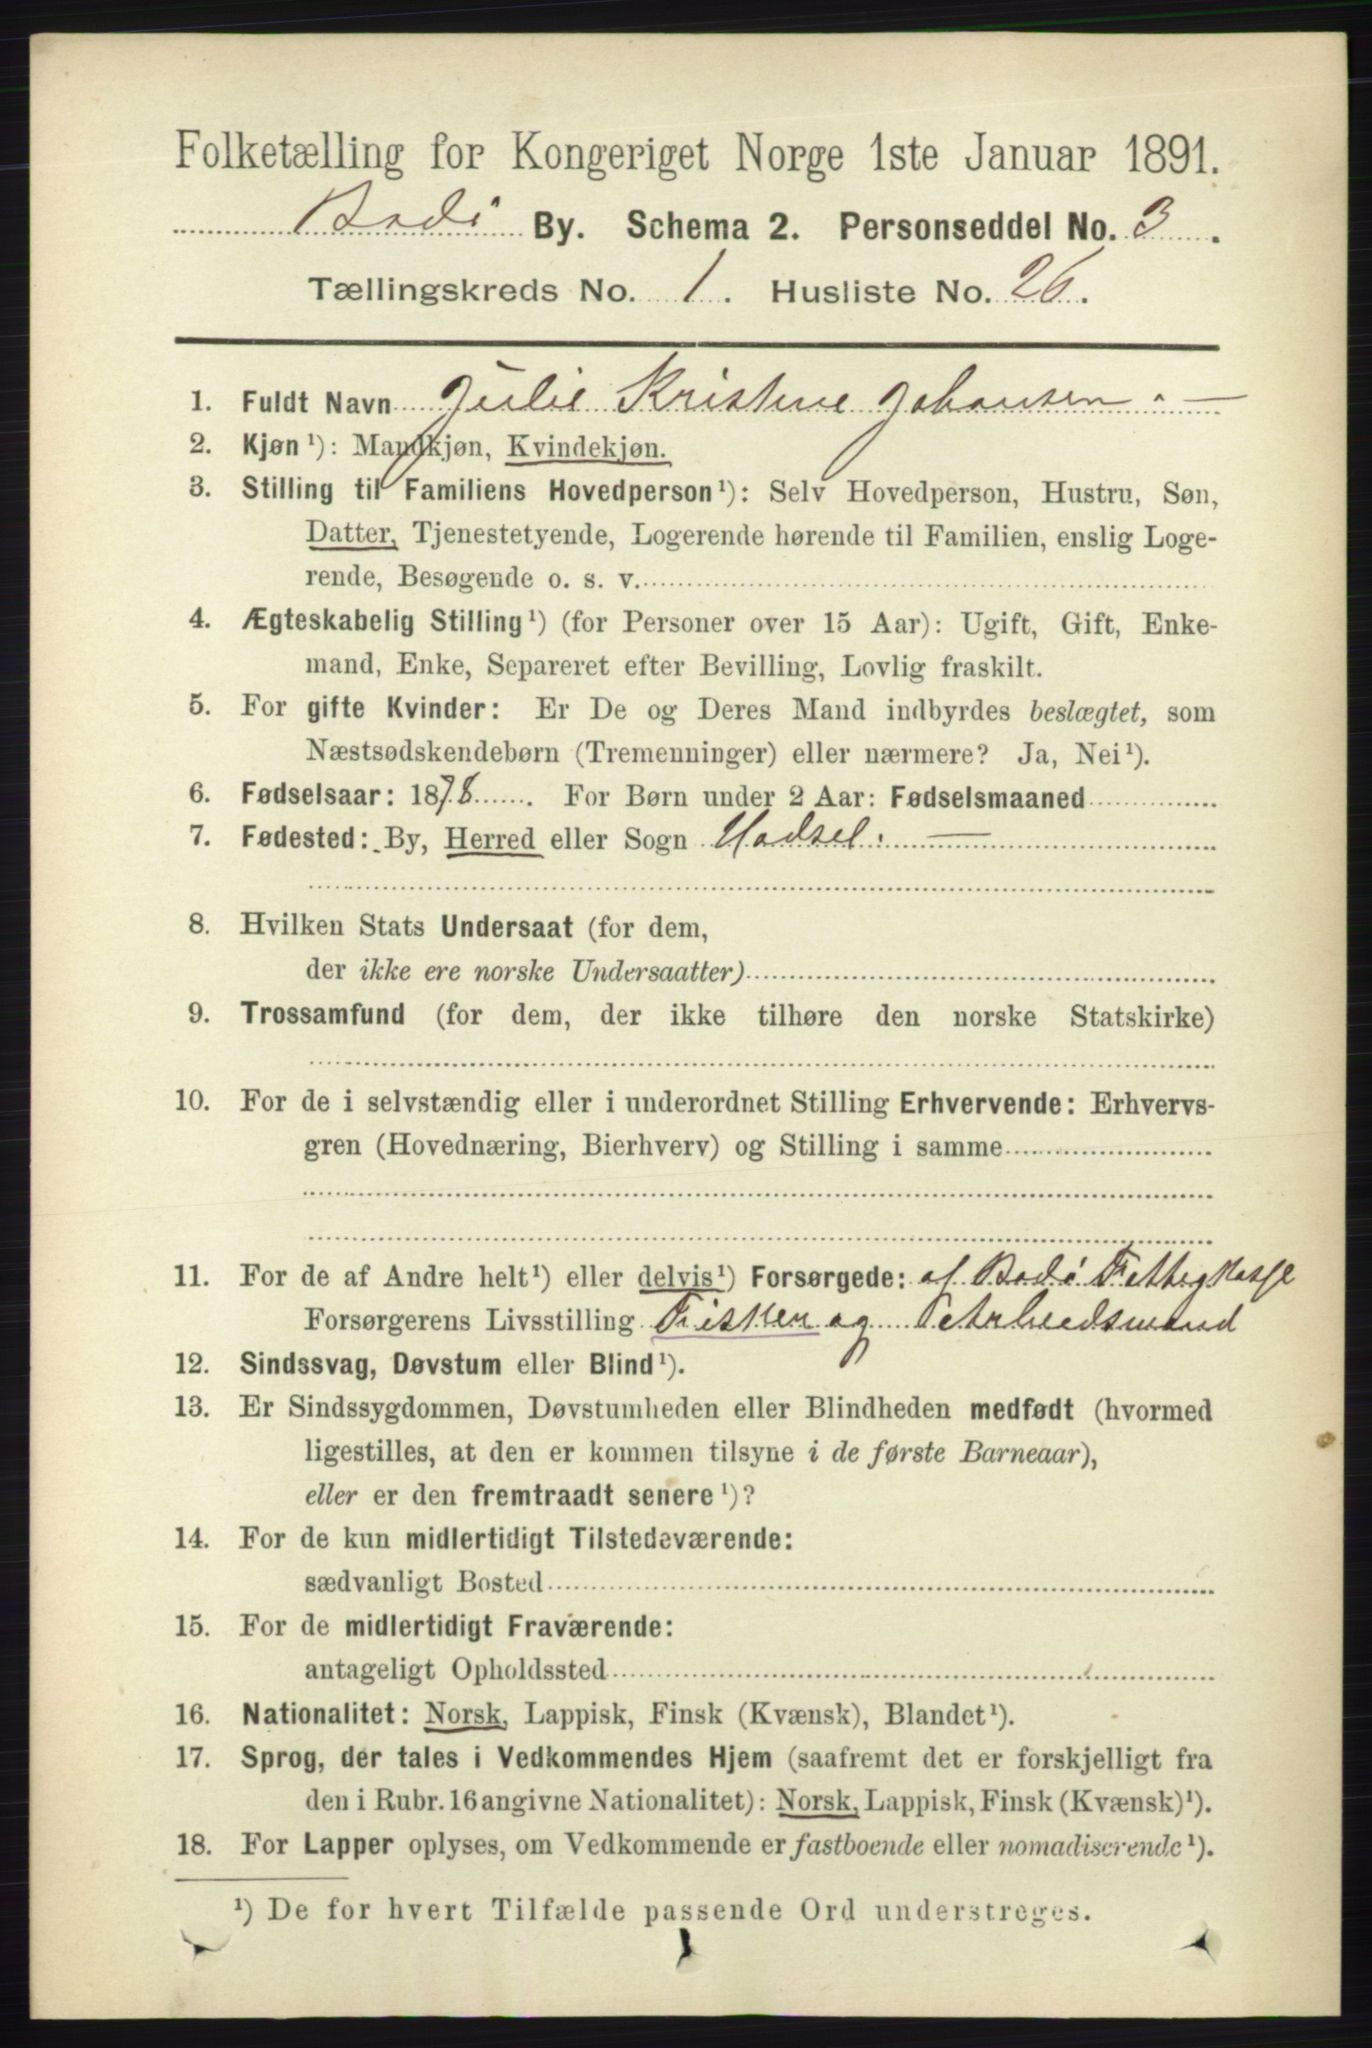 Folketælling for Kongeriget Norge 1ste Januar 1891.
Bodø By. Schema 2. Personseddel No. 3.
Tællingskreds No. 1. Husliste No. 26.
1. Fuldt Navn Julie Kristine Johansen. —
2. Kjøn ¹): Mandkjøn, Kvindekjøn.
3. Stilling til Familiens Hovedperson ¹): Selv Hovedperson, Hustru, Søn,
Datter, Tjenestetyende, Logerende hørende til Familien, enslig Loge-
rende, Besøgende o. s. v.
4. Ægteskabelig Stilling ¹) (for Personer over 15 Aar): Ugift, Gift, Enke-
mand, Enke, Separeret efter Bevilling, Lovlig fraskilt.
5. For gifte Kvinder: Er De og Deres Mand indbyrdes beslægtet, som
Næstsødskendebørn (Tremenninger) eller nærmere? Ja, Nei ¹).
6. Fødselsaar: 1878. For Børn under 2 Aar: Fødselsmaaned
7. Fødested: By, Herred eller Sogn Hadsel. —
8. Hvilken Stats Undersaat (for dem,
der ikke ere norske Undersaatter)
9. Trossamfund (for dem, der ikke tilhøre den norske Statskirke)
10. For de i selvstændig eller i underordnet Stilling Erhvervende: Erhvervs-
gren (Hovednæring, Bierhverv) og Stilling i samme
11. For de af Andre helt ¹) eller delvis ¹) Forsørgede: af Bodø Fattigkasse
Forsørgerens Livsstilling Fisker og Arbeidsmand
12. Sindssvag, Døvstum eller Blind ¹).
13. Er Sindssygdommen, Døvstumheden eller Blindheden medfødt (hvormed
ligestilles, at den er kommen tilsyne i de første Barneaar),
eller er den fremtraadt senere ¹)?
14. For de kun midlertidigt Tilstedeværende:
sædvanligt Bosted
15. For de midlertidigt Fraværende:
antageligt Opholdssted
16. Nationalitet: Norsk, Lappisk, Finsk (Kvænsk), Blandet ¹).
17. Sprog, der tales i Vedkommendes Hjem (saafremt det er forskjelligt fra
den i Rubr. 16 angivne Nationalitet): Norsk, Lappisk, Finsk (Kvænsk) ¹).
18. For Lapper oplyses, om Vedkommende er fastboende eller nomadiserende ¹).
¹) De for hvert Tilfælde passende Ord understreges.